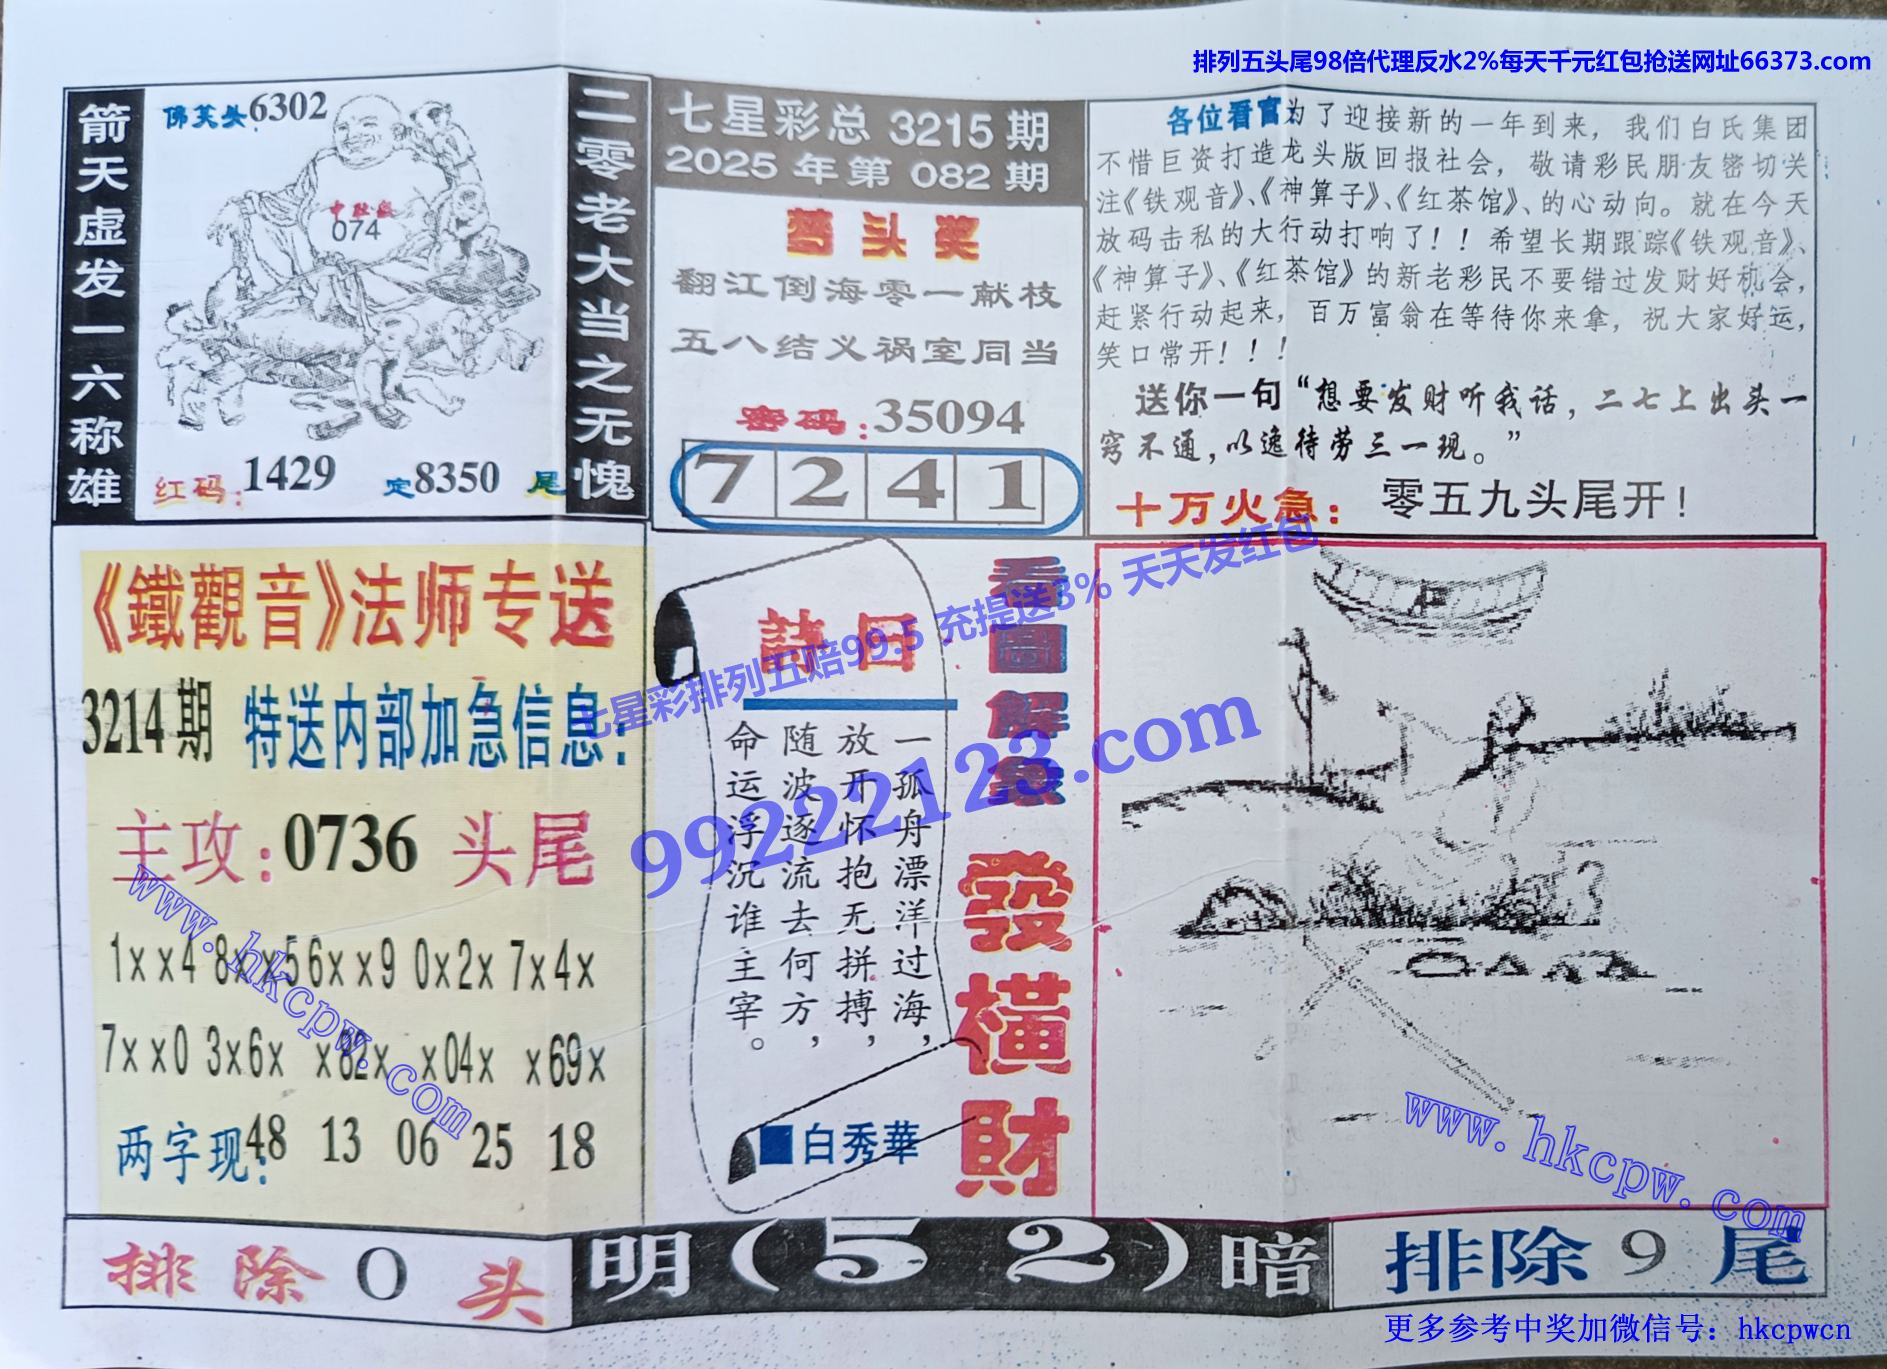 排列五头尾98倍代理反水2%每天千元红包抢送网址66373.com
箭天虚发一六称雄
佛笑头6302
074
红码:1429 定8350 尾
二零老大当之无愧
七星彩总 3215 期
2025 年第 082 期
梦头奖
翻江倒海零一献枝
五八结义祸室同当
密码:35094
7 2 4 1
各位看官为了迎接新的一年到来，我们白氏集团
不惜巨资打造龙头版回报社会，敬请彩民朋友密切关
注《铁观音》、《神算子》、《红茶馆》、的心动向。就在今天
放码击私的大行动打响了！！希望长期跟踪《铁观音》、
《神算子》、《红茶馆》的新老彩民不要错过发财好机会，
赶紧行动起来，百万富翁在等待你来拿，祝大家好运，
笑口常开！！！
送你一句“想要发财听我话，二七上出头一
窍不通，以逸待劳三一现。”
十万火急：零五九头尾开！
《鐵觀音》法师专送
3214期 特送内部加急信息：
主攻：0736 头尾
1xx4 8xx5 6xx9 0x2x 7x4x
7xx0 3x6x x82x x04x x69x
两字现：48 13 06 25 18
詩曰
一孤舟漂洋过海，
放开怀抱无拼搏，
随波逐流去何方，
命运浮沉谁主宰。
■白秀華
看圖解象
發橫財
七星彩排列五赔99.5 充提送3% 天天发红包
99222123.com
www.hkcpw.com
www.hkcpw.com
排除0头
明(52)暗
排除9尾
更多参考中奖加微信号：hkcpwcn